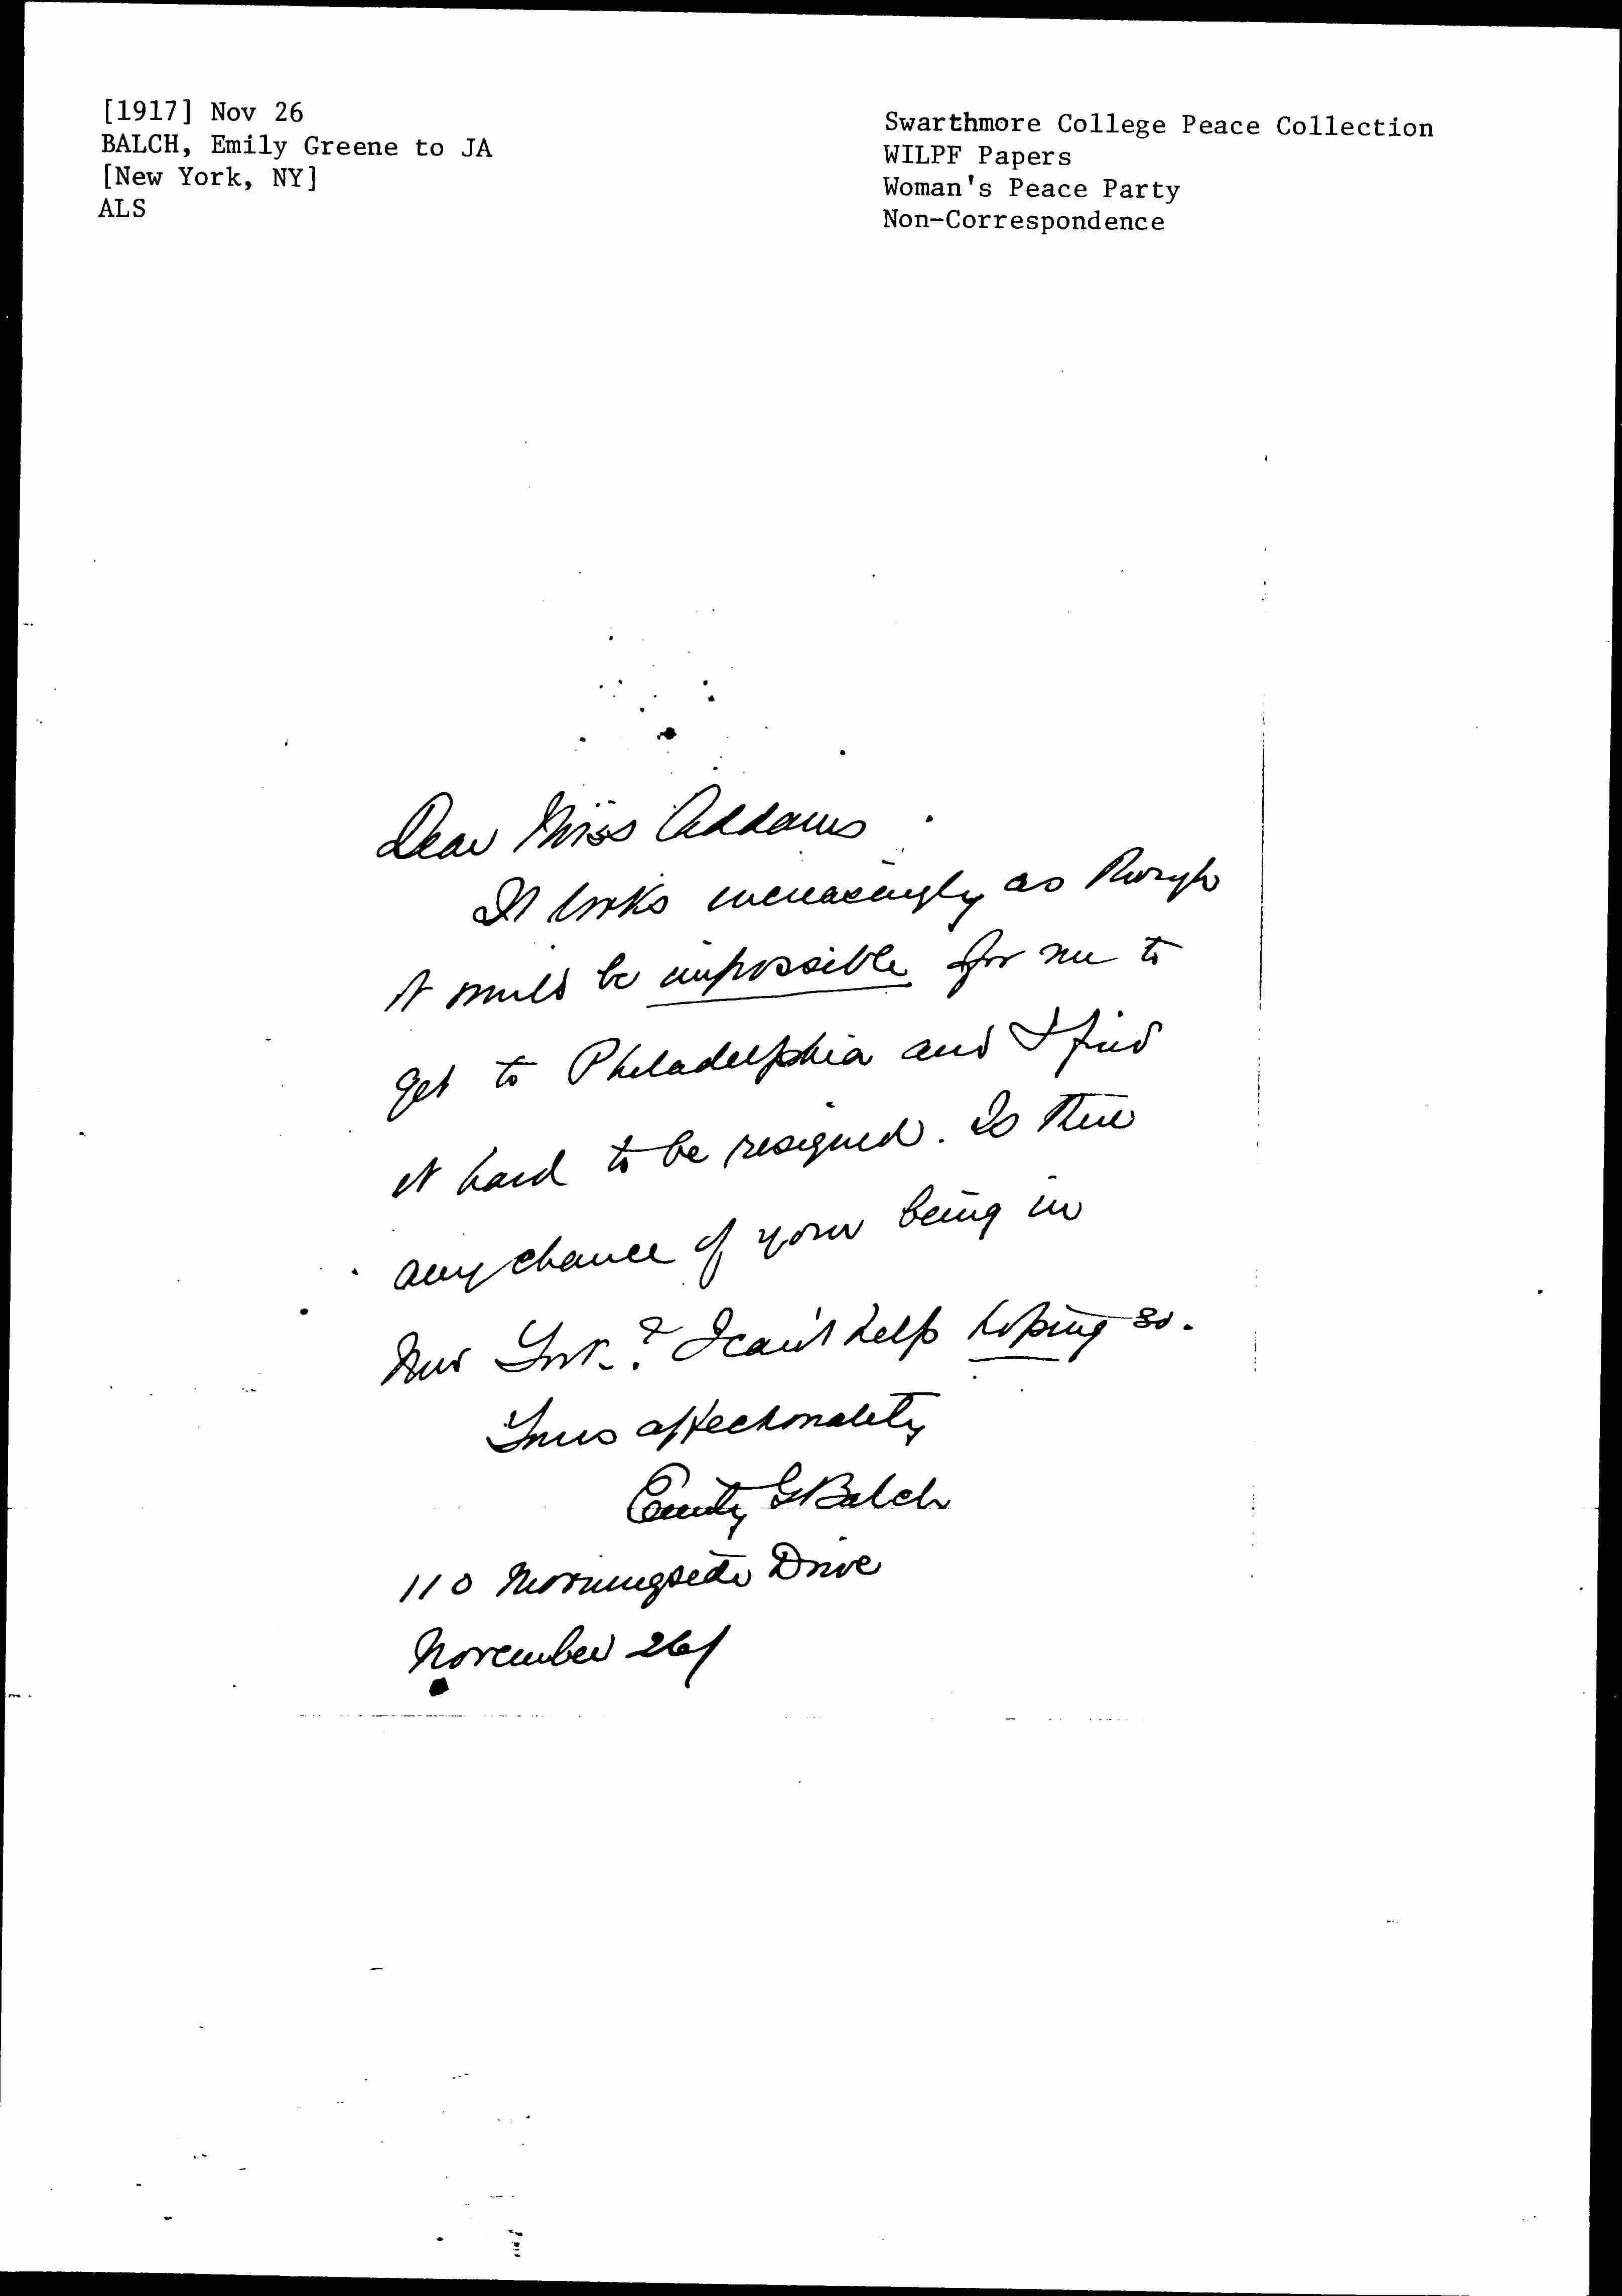 [1917] Nov 26
BALCH, Emily Greene to JA
[New York, NY]
ALS
Swarthmore College Peace Collection
WILPF Papers
Woman's Peace Party
Non-Correspondence
Dear Miss Addams
It looks increasingly as though
it would be impossible for me to
get to Philadelphia and I find
it hard to be resigned. Is there
any chance of your being in
New York? I can't help hoping so.
Yours affectionately
Emily G Balch
110 Morningside Drive
November 26/